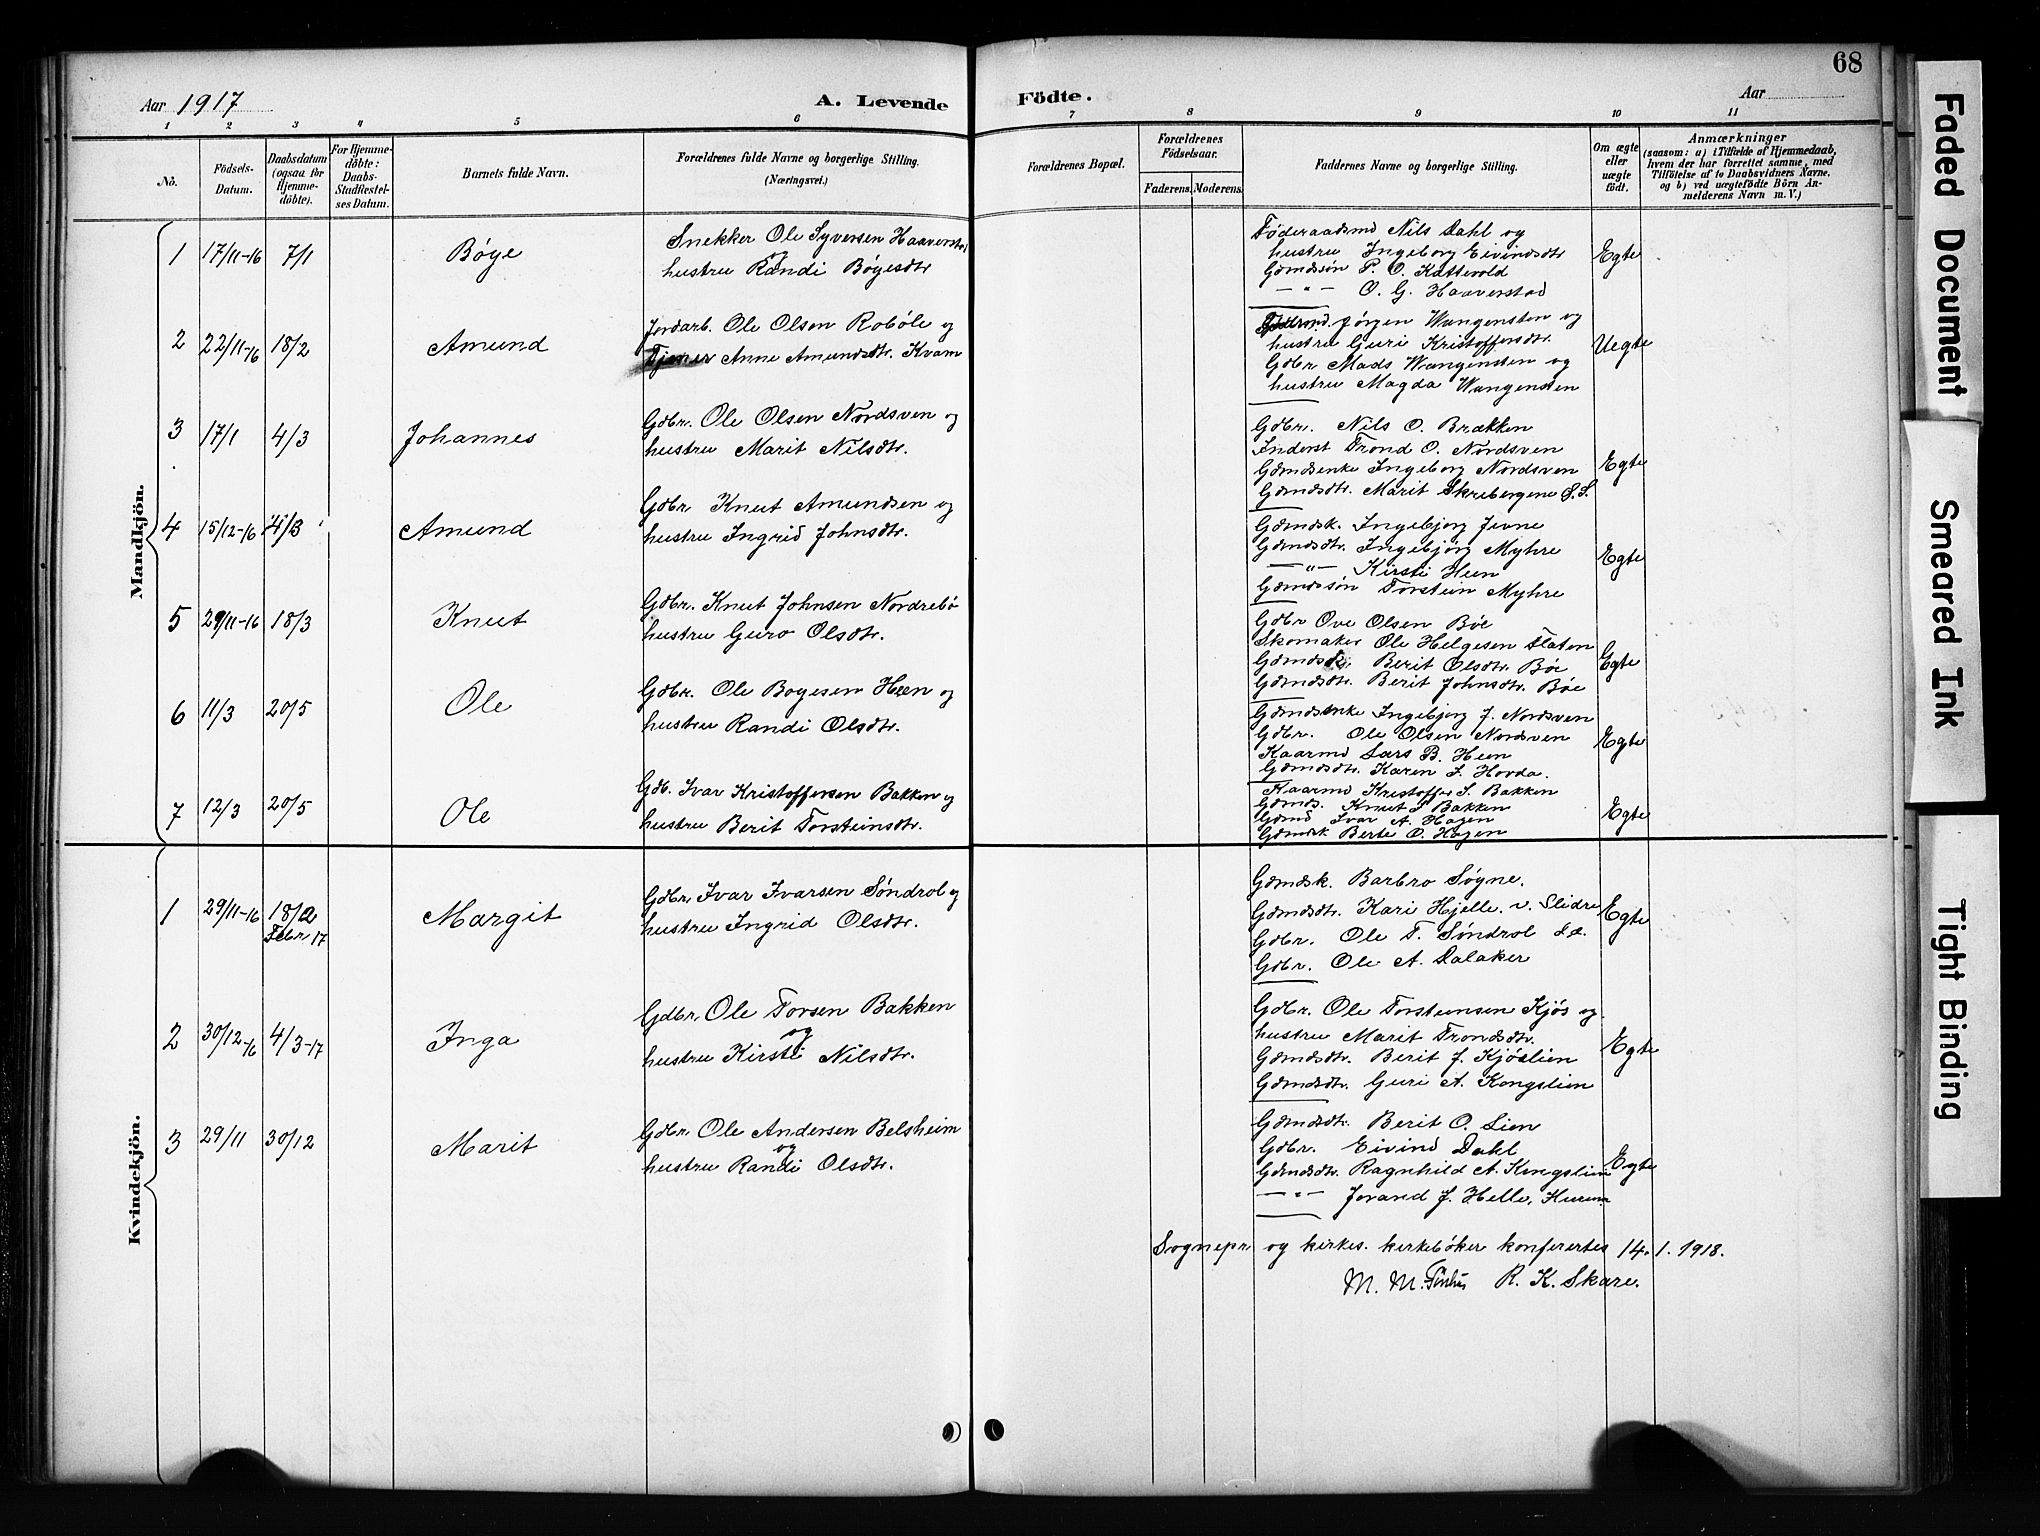 68
Aar 1917
A. Levende Födte.
Aar
1 2 3 4 5 6 7 8 9 10 11
No.
Födsels-Datum.
Daabsdatum (ogsaa for Hjemme-döbte).
For Hjemme-döbte: Daabs-Stadfestel-ses Datum.
Barnets fulde Navn.
Forældrenes fulde Navne og borgerlige Stilling.
(Næringsvei.)
Forældrenes Bopæl.
Forældrenes Födselsaar.
Faderens. Moderens.
Faddernes Navne og borgerlige Stilling.
Om ægte eller uægte födt.
Anmærkninger
(saasom: a) i Tilfælde af Hjemmedaab,
hvem der har forrettet samme, med
Tilföielse af to Daabsvidners Navne,
og b) ved uægtefödte Börn An-
melderens Navn m. V.)
Mandkjön.
1 17/11-16 7/1 Bøye
Snekker Ole Syversen Haaverst
og
hustru Randi Bøyesdtr
Föderaadsmd Nils Dahl og
hustru Ingeborg Eivindsdtr
Gdmdssøn P. O. Kattevold
— " — O. G. Haaverstad
Egte
2 22/11-16 18/2 Amund
Jordarb. Ole Olsen Robøle og
Tjener Anne Amundsdtr. Kvam
Jørgen Wangensten og
hustru Guri Kristoffersdtr.
Gdbr Mads Wangensten og
hustru Magda Wangensten
Uegte
3 17/1 4/3 Johannes
Gdbr. Ole Olsen Nordsven og
hustru Marit Nilsdtr.
Gdbr. Nils O. Brækken
Inderst Trond O. Nordsven
Gdmdsenke Ingeborg Nordsven
Gdmdsdtr. Marit Skrebergene S.S.
Egte
4 15/12-16 4/3 Amund
Gdbr Knut Amundsen og
hustru Ingrid Johnsdtr.
Gdmdsk. Ingebjørg Jevne
Gdmdsdtr. Ingebjørg Myhre
— " — Kirsti Heen
Gdmdssøn Torstein Myhre
Egte
5 29/11-16 18/3 Knut
Gdbr. Knut Johnsen Nordrebö
hustru Guro Olsdtr.
Gdbr Ove Olsen Böe
Skomaker Ole Helgesen Flaten
Berit Olsdtr. Böe
Gdmdsdtr. Berit Johnsdtr. Böe
Egte
6 11/3 20/5 Ole
Gdbr. Ole Bøyesen Heen og
hustru Randi Olsdtr.
Gdmdsenke Ingebjørg J. Nordsven
Gdbr. Ole Olsen Nordsven
Kaarmd Lars B. Heen
Gdmdsdtr. Karen J. Hovda.
Egte
7 12/3 20/5 Ole
Gdb. Ivar Kristoffersen Bakken og
hustru Berit Torsteinsdtr.
Kaarmd Kristoffer I. Bakken
Gdmds. Knut I Bakken
Gdmd Ivar A. Hagen
Gdmdsk Berte O. Hagen
Egte
Kvindekjön.
1 29/11-16 18/2 Febr. 17 Margit
Gdbr. Ivar Ivarsen Søndrol og
hustru Ingrid Olsdtr.
Gdmdsk. Barbro Søgne.
Gdmdsdtr. Kari Hjelle. v. Slidre
Gdbr. Ole T. Søndrol
Gdbr. Ole A. Dalaker
Egte
2 30/12-16 4/3-17 Inga
Gdbr. Ole Torsen Bakken
og
hustru Kirsti Nilsdtr.
Gdbr. Ole Torsteinsen Kjøs og
hustru Marit Trondsdtr.
Gdmdsdtr. Berit J. Kjøslien
Gdmdsdtr. Guri A. Kongslien
Egte
3 29/11 30/12 Marit
Gdbr. Ole Andersen Belsheim
og
hustru Randi Olsdtr.
Gdmdsdtr. Berit O. Lien
Gdbr. Eivind Dahl
Gdmdsdtr. Ragnhild A. Kongslien
— " — Jorand J. Helle, Hurum
Egte
Sognepr. og kirkes. kirkebøker konferertes 14. 1. 1918.
M. M. R. K. Skare.
Faded Document
Smeared Ink
Tight Binding